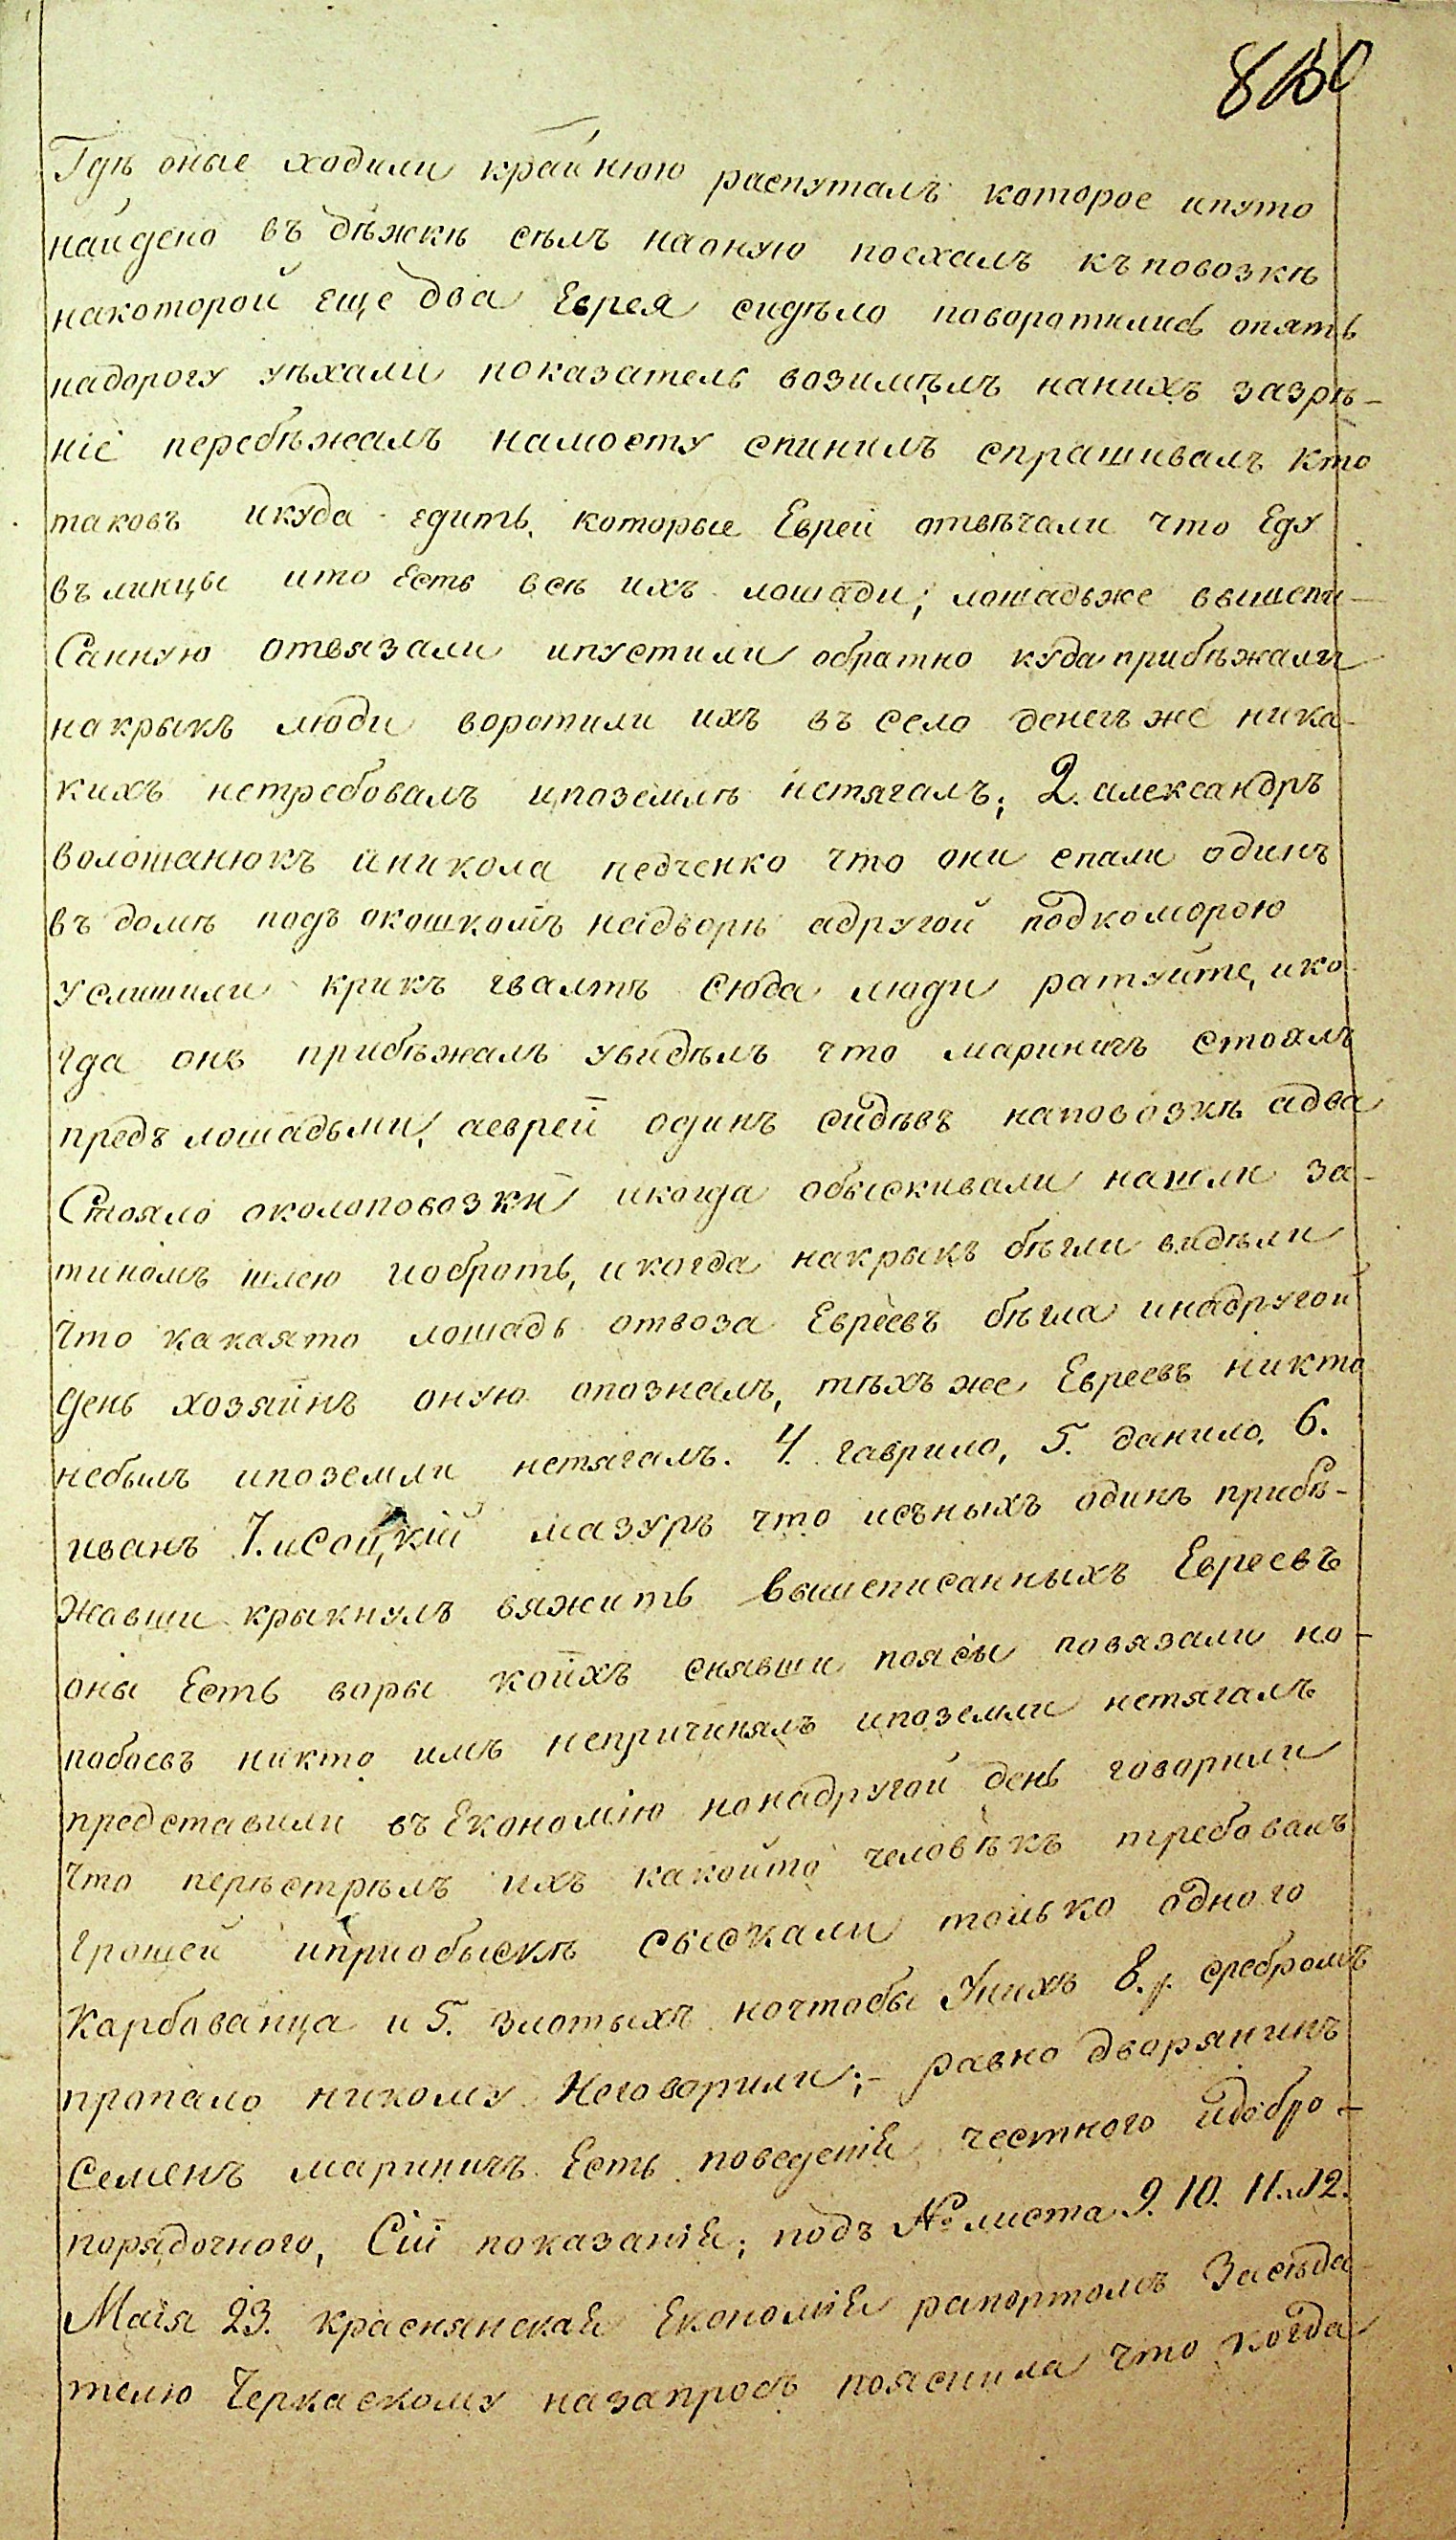 Гдѣ оные ходили крайнюю распуталъ которое ипуто
найдено въ дѣжкѣ сѣлъ наоную поехалъ къ повозкѣ
накоторой еще два Еврея сидѣло поворотились опять
надорогу уѣхали показатель возимѣлъ нанихъ зазрѣ-
ніе перебѣжалъ намосту спинилъ спрашивалъ кто
таковъ икуда едить, которые Евреи отвѣчали что Еду
въ линцы ито есть всѣ ихъ лошади; лошадьже вышепи-
Санную отвязали ипустили обратно куда прибѣжали
накрыкъ люди воротили ихъ въ село денегъ же ника-
кихъ нетребовалъ ипоземлѣ нетягалъ; 2. александръ
волошанюкъ иникола педченко что они спали одинъ
въ домѣ подъ окошкомъ надворѣ адругой подкоморою
услишили крикъ гвалтъ сюда люди ратуйте, ико
гда онъ прибѣжалъ увидѣлъ что мариничъ стоялъ
предъ лошадьми, аеврей одинъ сидѣвъ наповозкѣ адва
Стояло околоповозки икогда обыскивали нашли за-
тиномъ шлею иоброть, икогда накрыкъ бѣгли видѣли
что какаято лошадь отвоза Евреевъ бѣгла инадругой
день хозяинъ оную опозналъ, тѣхъ же Евреевъ никто
небылъ ипоземли нетягалъ. 4. гаврило, 5. данило, 6.
иванъ 7. исоцкій мазуръ что исъныхъ одинъ прибѣ-
жавши крыкнулъ вяжить вышеписанныхъ Евреевъ
оны Есть воры коихъ снявши поясы повязали но-
побоевъ никто имъ непричинялъ ипоземли нетягалъ
представили въ Економію нонадругой день говорили
что перѣстрѣлъ ихъ какойто человѣкъ требовалъ
грошей иприобыскѣ сыскали только одного
карбованца и 5. злотыхъ ночтобы Унихъ 8. р. сребромъ
пропало никому неговорили;- равно дворянинъ
Семенъ мариничъ Есть поведеніи честного идобро-
порядочного, Сіи показаніи; подъ № листа 9. 10. 11. и 12.
Маія 23. краснянскаи Економіи рапортомъ Засѣда-
телю Черкаскому назапросъ пояснила что когда